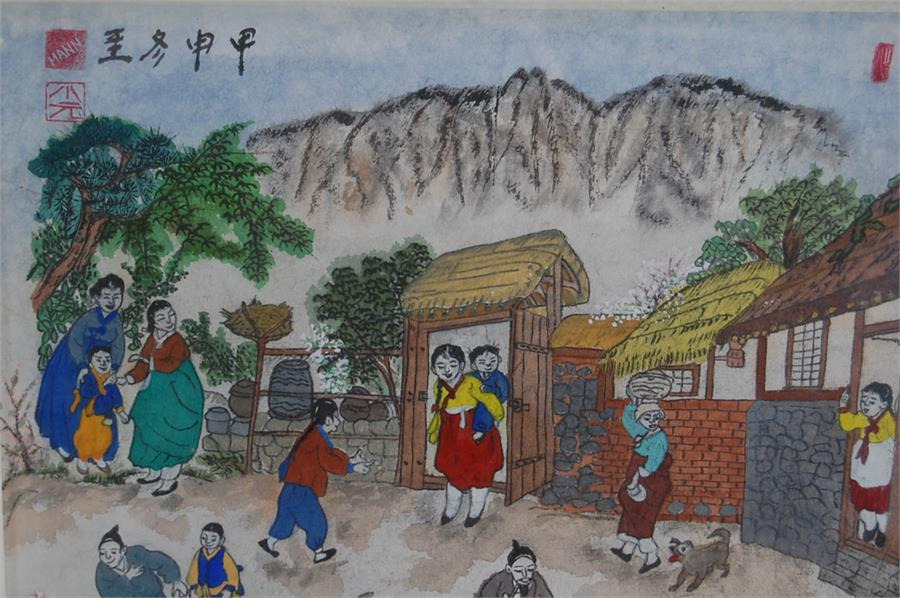 甲申冬至
MANN